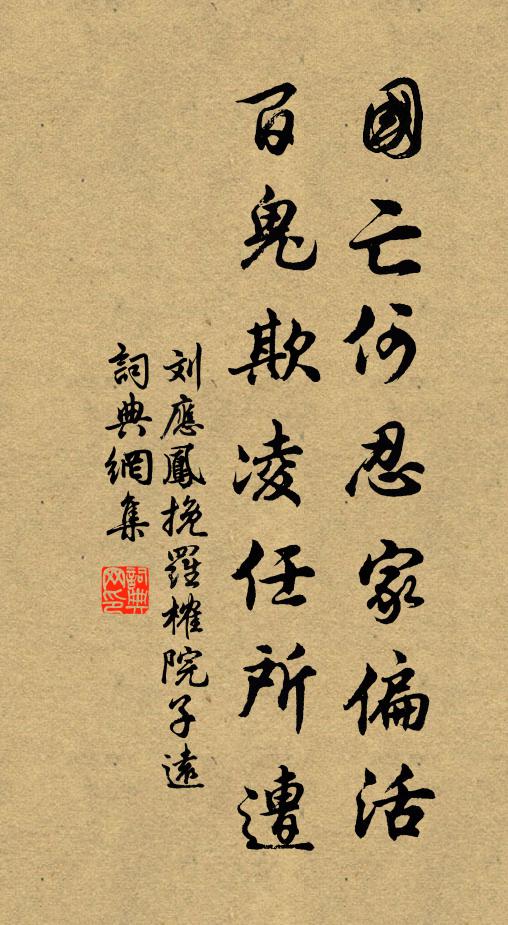 國亡何忍家偏活
百鬼欺凌任所遭
刘應鳳挽羅榷院子遠
詞典網集
詞典網印